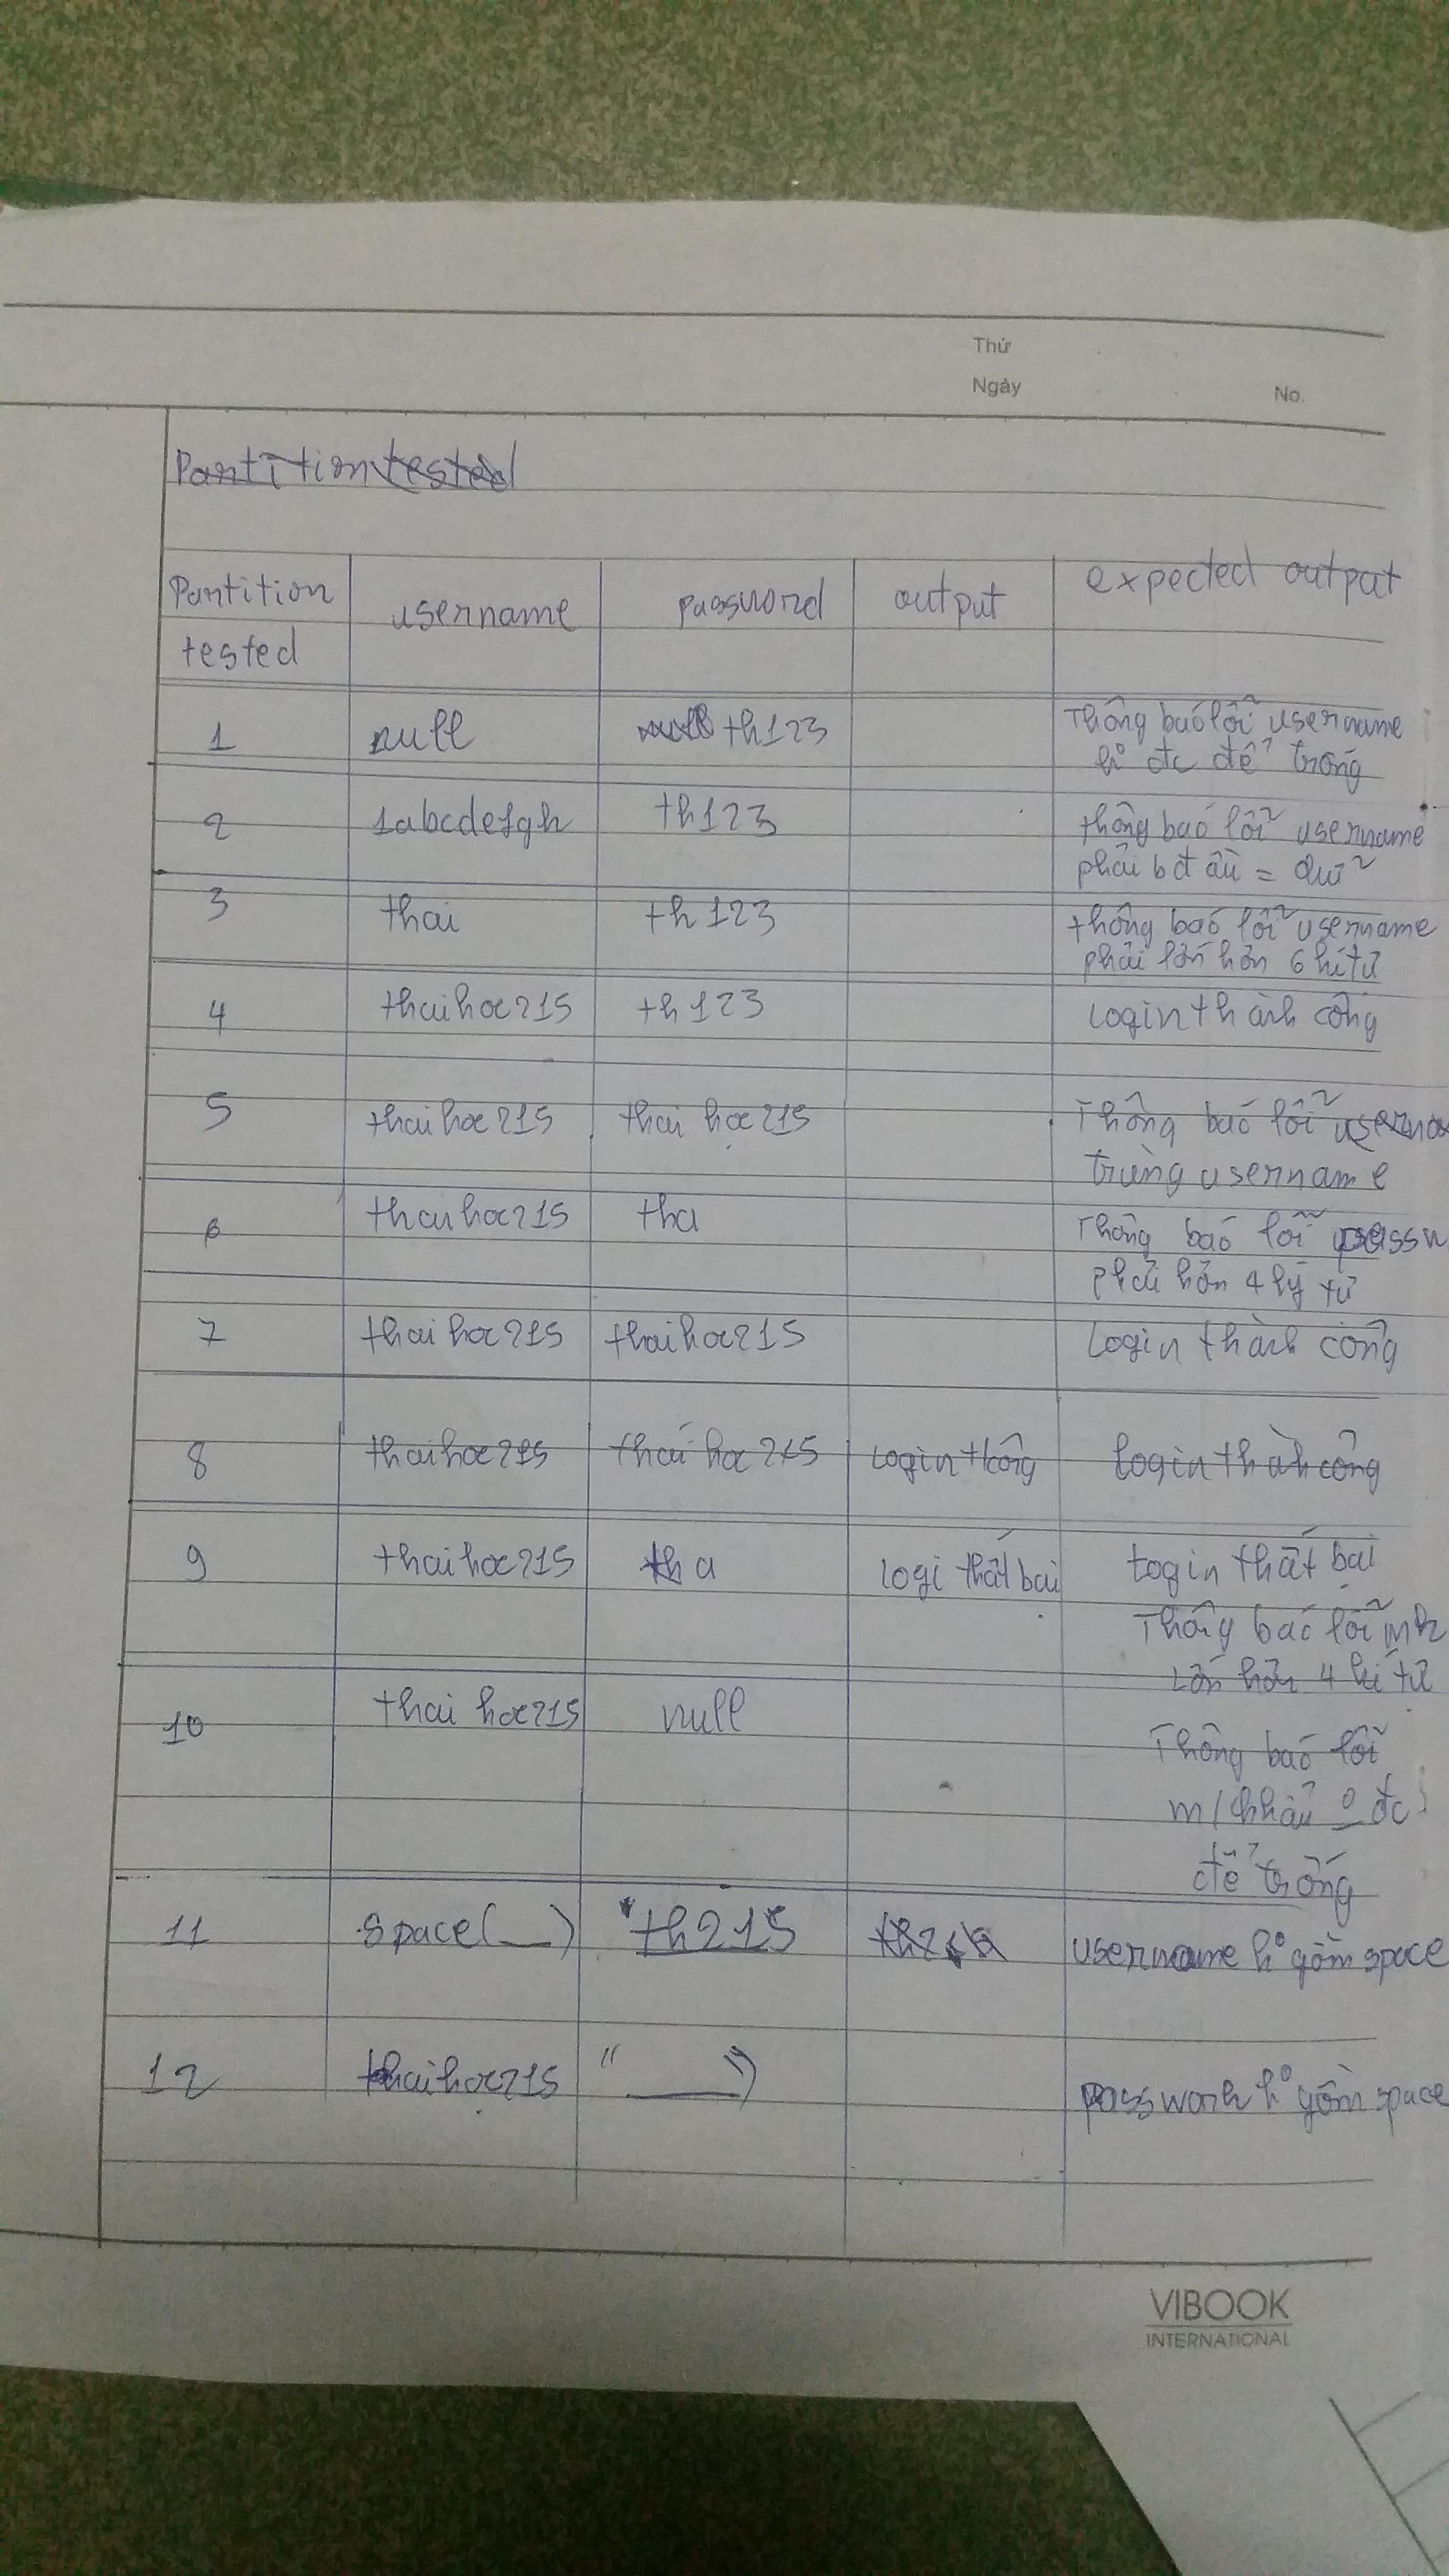 Thứ
Ngày
No.
Partition tested
Partition tested
username
password
output
expected output
1 null th123 Thông báo lỗi username
k° đc để trống
2 1abcdefgh th123 thông báo lỗi username
phải bđ đầu = chữ
3 thai th123 thông báo lỗi username
phải lớn hơn 6 kí tử
4 thaihoc215 th123 Login thành công
5 thaihoc215 thaihoc215 Thông báo lỗi
trùng username
6 thaihoc215 tha Thông báo lỗi passw
phải hơn 4 ký tử
7 thaihoc215 thaihoc215 Login thành công
8 thaihoc215 thaihoc215 Login thành công
9 thaihoc215 tha logi thất bai Login thất bại
Thông báo lỗi mk
Lớn hơn 4 kí tử
10 thaihoc215 null Thông báo lỗi
đc
để trống
11 space(_) th215 username k° gồm space
12 thaihoc215 "___" k° gồm space
VIBOOK
INTERNATIONAL